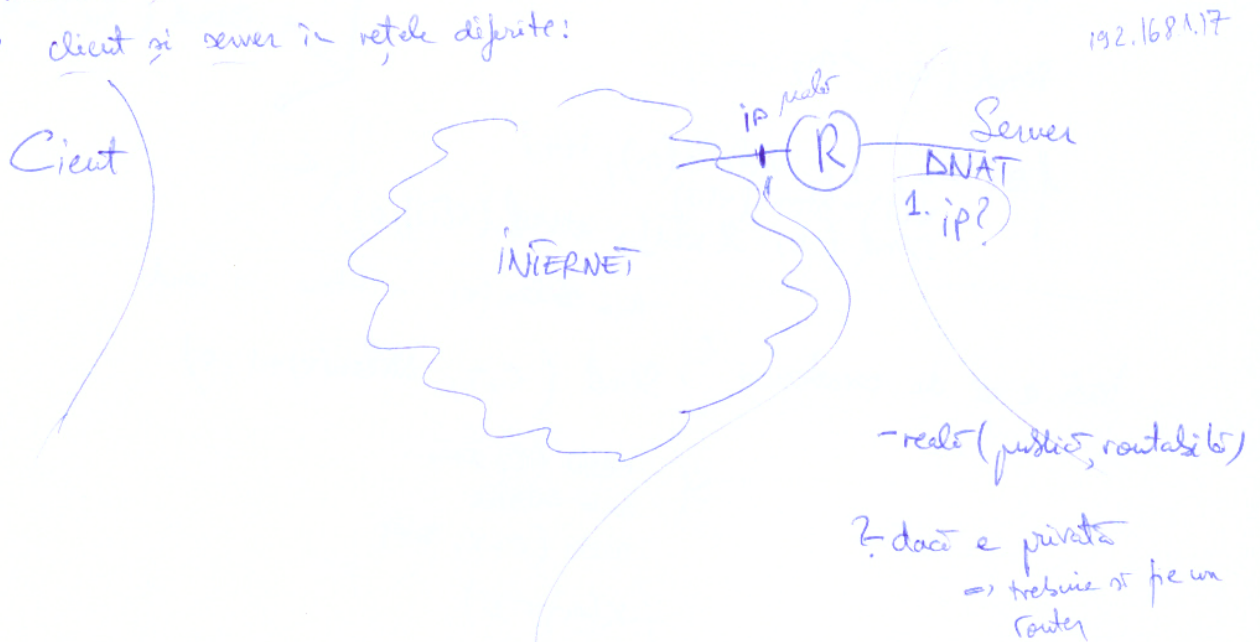 client și server în rețele diferite:
192.168.1.17
Cient
ip reală
R
Server
DNAT
1. ip?
INTERNET
- reală (publică, routabilă)
? - dacă e privată
=> trebuie să fie un
router